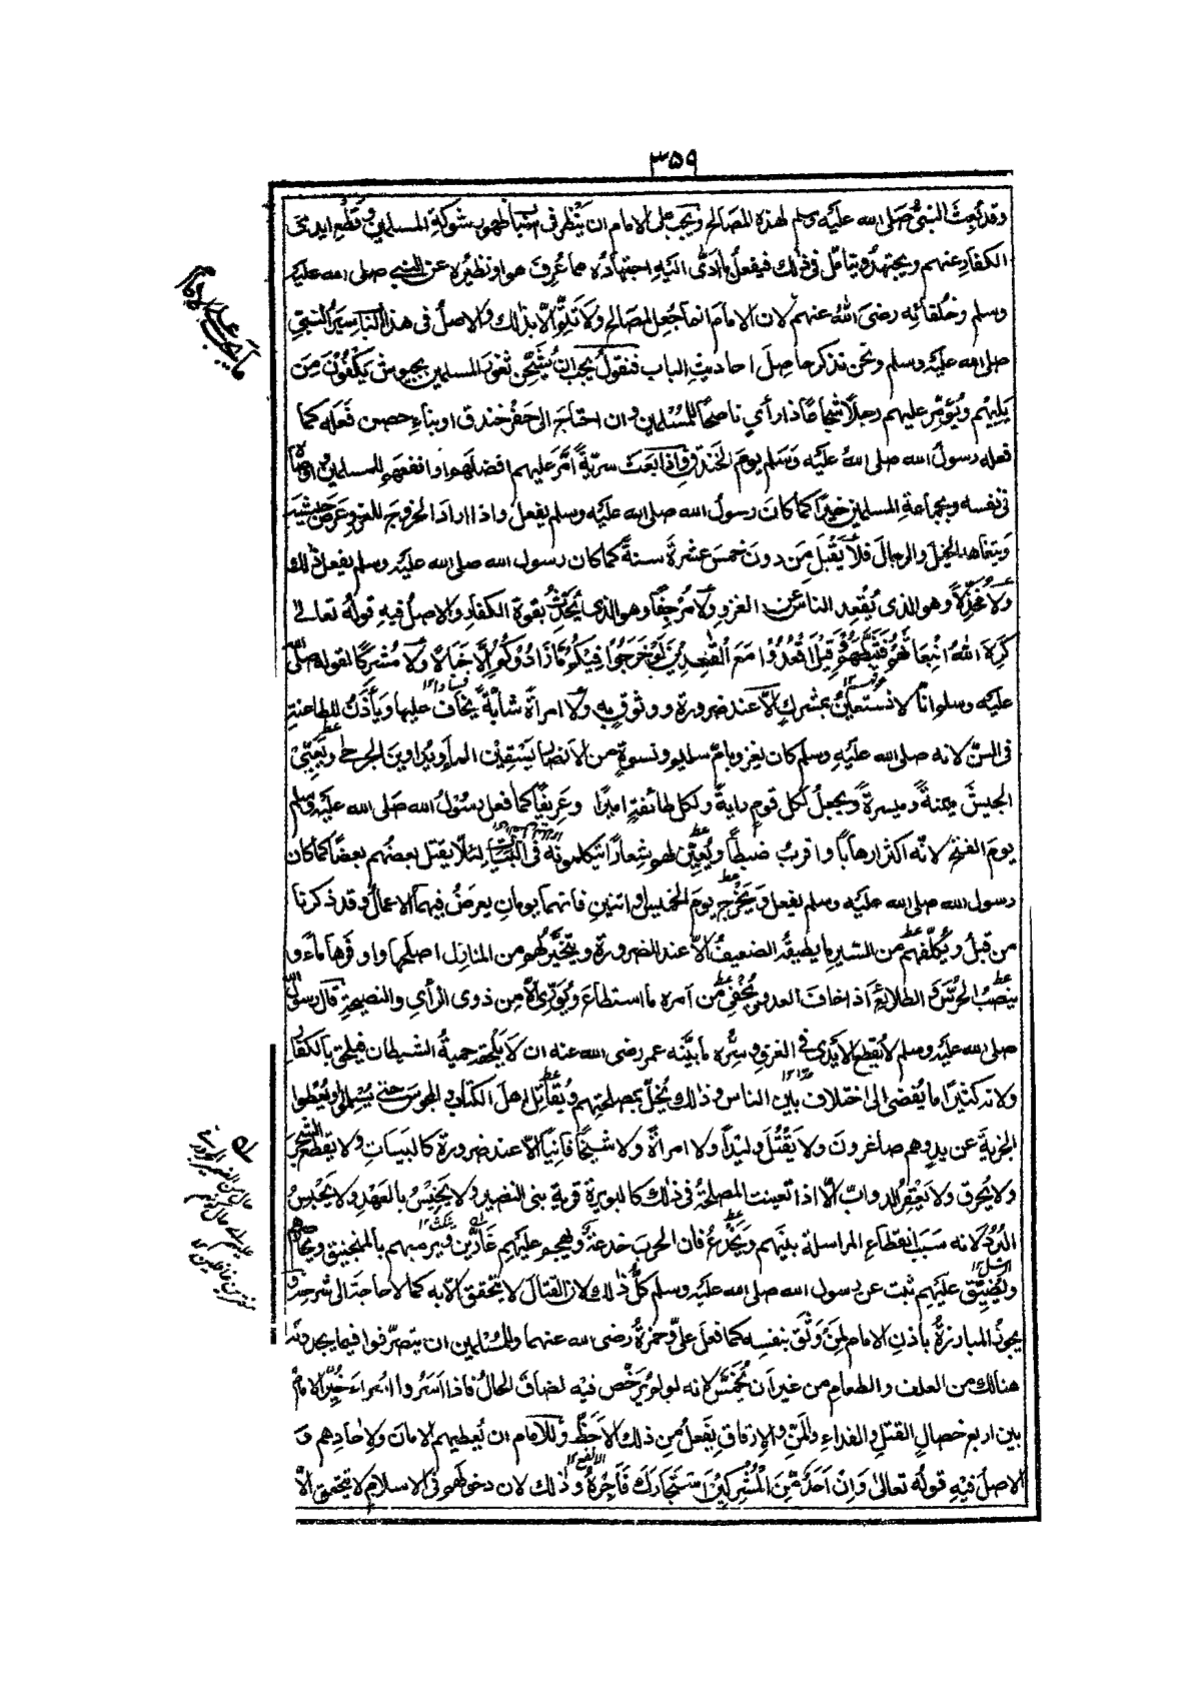 ٣٥٩
وقد بُعِثَ النبيُّ صَلى الله عليه وسلم لهذه المصَالح ويَجب على الامام ان يَنظر فى اسباب ظهور شوكةِ المسلمين وقَطْعِ ايدى
الكفار عنهم ويجتهد ويتامّل فى ذلك فيفعل ما ادّى اليهِ اجتهادُه مما عُرِف هو او نظيرُه عن النبى صلى الله عليه
وسلم وخُلفائِه رضىَ اللهُ عنهم لان الامامَ انما جُعِل لمصَالح ولا تتم الّا بذلك والاصلُ فى هذا الباب سِيَرُ النبىّ
صلى الله عليه وسلم ونحن نذكر حاصِلَ احاديثِ الباب فنقول يجب ان يُشْحَنَ ثغورَ المسلمين بجيوش يَكفُونَ مَن
يَلِيهم ويُؤمِّر عليهم رجلًا شجاعًا ذا رأىٍ ناصحًا للمُسْلمين وان احتاجَ الى حَفْرِ خندق اوبناءِ حصن فَعَله كما
فعله رسولُ الله صلى اللهُ عليه وَسَلم يومَ الخندق واذا بَعَثَ سريّةً اَمَّر عليهم افضلَهم او انفعَهم للمسلمين واوصاه
فى نفسه وبجماعةِ المسلمين خيرًا كما كانَ رسولُ الله صلى الله عليه وسلم يفعلُ واذا ارادَ الخروجَ للغزو عَرَض جيشَه
وَيتعاهد الخيلَ والرجالَ فلا يَقْبَلُ مَن دونَ خمسَ عشرةَ سنةً كما كان رسول الله صلى الله عليه وسلم يفعل ذلك
ولا مُخَذِّلًا وهو الذى يُقعِد الناسَ عن الغزو ولا مُرجِفًا وهو الذى يُحَدِّثُ بقوة الكفار والاصل فيهِ قولُه تعالى
كَرِهَ اللهُ انْبِعَاثَهُمْ فَثَبَّطَهُمْ وَقِيلَ اقْعُدُوا مَعَ الْقٰعِدِينَ لَوْ خَرَجُوا فِيكُمْ مَا زَادُوكُمْ اِلَّا خَبَالًا ولا مُشرِكًا لقوله صلى الله
عليه وسلم انّا لا نستعينُ بمشركٍ الّا عند ضرورة ووثوق به ولا امرأةً شابّةً يخاف عليها ويَأْذَن للطاعنةِ
فى السنّ لانه صلى الله عليهِ وسلم كان يغزو بامّ سليم ونسوةٍ من الانصار يَسْقِيْن الماءَ ويُداوينَ الجرحى ويُعَبِّئ
الجيشَ ميمنةً وميسرةً ويجعلُ لكل قومٍ رايةً ولكل طائفةٍ اميرًا وعَرِيفًا كما فعل رسُولُ الله صَلى الله عليه وسلم
يومَ الفتح لانّه اكثر ارهابًا واقربُ ضبطًا ويُعَيِّن لهم شِعارًا يتكلمونه فى البَيَات لئلّا يقتل بعضُهم بعضًا كما كان
رسول الله صلى الله عليه وسلم يفعل ويَخْرُج يومَ الخميس او اثنين فانهما يومانِ يعرَضُ فيهما الاعمالُ وقد ذكرنا
من قبلُ ويُكلّفهم من السّير ما يطيقُه الضعيفُ الّا عند الضرورة ويتخيّر لهم من المنازل اصلحَها واوفرها ماءً و
ينصِبُ الحُرّسَ والطلائعَ اذا خافَ العدو ويُخْفِى من امره ما استطاعَ ويُوَرِّى الّا من ذوى الرأىِ والنصيحةِ قال رسولُ الله
صلى الله عليه وسلم لا تُقطع الايدى فى الغزو وسِرُّه ما بيّنه عمر رضى الله عنه ان لا يَلْحَقه حميةُ الشيطان فيلحق بالكفار
ولانه كثيرًا ما يُفضِى الى اختلاف بين الناس وذلك يُخِلّ بمصلحتهم ويُقاتِل اهلَ الكتاب والمجوسَ حتى يُسْلِموا او يُعْطوا
الجزيةَ عن يدٍ وهم صاغرونَ ولا يَقْتُلُ وليْدًا ولا امرأةً ولا شيخًا فانيًا الّا عند ضرورة كالبَيَاتِ ولا يقطع الشجرَ
ولا يُحرق ولا يَعْقِر الدوابّ الّا اذا تعينت المصلحةُ فى ذلك كالبويرة قريةِ بنى النضير ولا يَخِيْسُ بالعَهدِ ولا يَحْبِسُ
البُرُدَ لانه سَبَبُ انقطاع المراسلة بينَهم ويَخْدَعُ فان الحربَ خدعةٌ ويهجم عليهم غارّين ويرميهم بالمنجنيق ويحاصرهم
ويُضيّق عليهم ثبت عن رسول الله صلى الله عليه وسلم كلُّ ذلك لان القتال لا يتحقق الّا به كما لا حاجةَ الى شرحِه و
يجوز المبارزةُ باذن الامام لِمَنْ وَثَقَ بنفسِه كما فعلَ علىٌّ وحمزةُ رضى الله عنهما وللمُسْلمين ان يتصرّفوا فيما يجدونه
هنالك من العلف والطعامِ من غير ان يُخَمَّسَ لانه لو لم يُرَخَّص فيه لضاق الحالُ فاذا اَسَرُوا اُسراءَ خُيِّر الامامُ
بين اربع خصالٍ القتلِ والفداءِ والمنِّ والارقاقِ يَفعلُ من ذلك الاَحَظَّ وللامام ان يُعطِيَهم الامانَ ولاٰحادِهم و
الاصلُ فيْهِ قولُه تعالىٰ وَاِنْ اَحَدٌ مِّنَ الْمُشْرِكِيْنَ اسْتَجَارَكَ فَاَجِرْهُ وذلك لان دخولَهم فى الاسلامِ لا يتحقق الّا